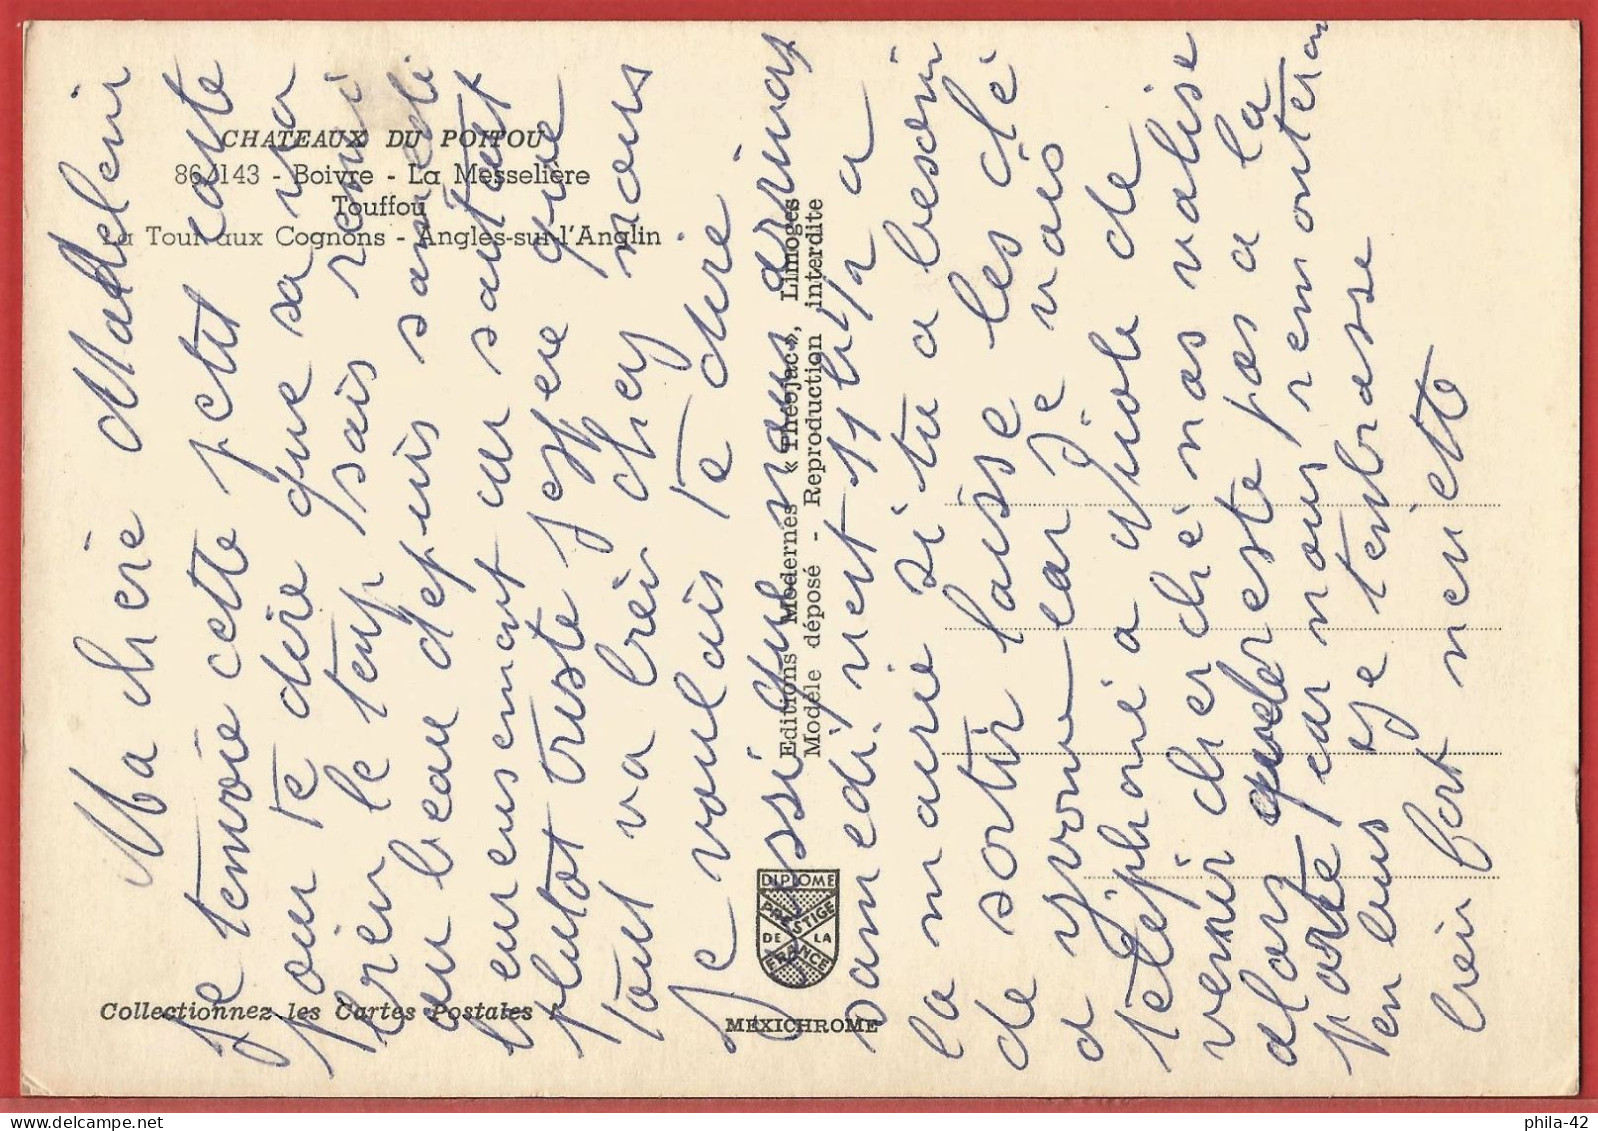 CHATEAUX DU POITOU
86/143 - Boivre - La Messelière
Touffou
La Tour aux Cognons - Angles-sur-l'Anglin
Editions Modernes « Théojac », Limoges
Modèle déposé - Reproduction interdite
DIPLOME
PRESTIGE
DE LA
FRANCE
Collectionnez les Cartes Postales !
MEXICHROME
Ma cherè Madelein
Je tenvoie cette petit carte
pour te dire que sa va
brien le temp sais remi
au beau depuis samedi
heureusement au sautest
plutot truste jespere que
tout va brein chez nous
Je voulais te dire
si nous arivas
samedi vert 11 h il a
la marie si tu a besoin
de sortir laisse les clé
a yvone car je vais
téléphoné a yvole de
venir chercher nos valise
alors reste pas a la
porte car nous remonteron
en bus Je tenbrasse
bien fort neneitte
phila-42